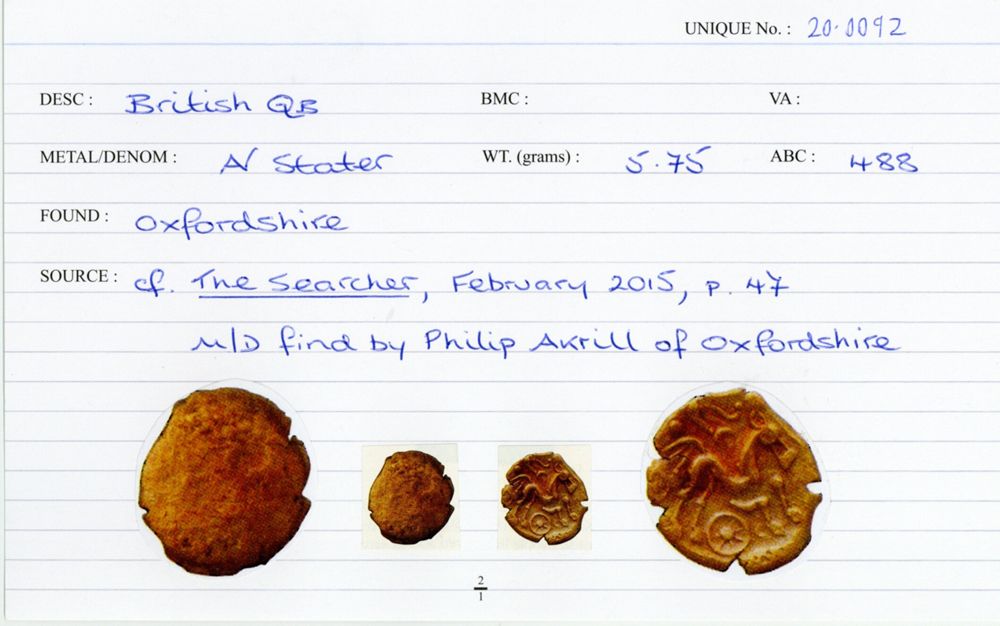 UNIQUE No. : 20.0092
DESC : British QB BMC : VA :
METAL/DENOM : AV Stater WT. (grams) : 5.75 ABC : 488
FOUND : Oxfordshire
SOURCE : cf. The Searcher, February 2015, p. 47
M/D find by Philip Akrill of Oxfordshire
2
1